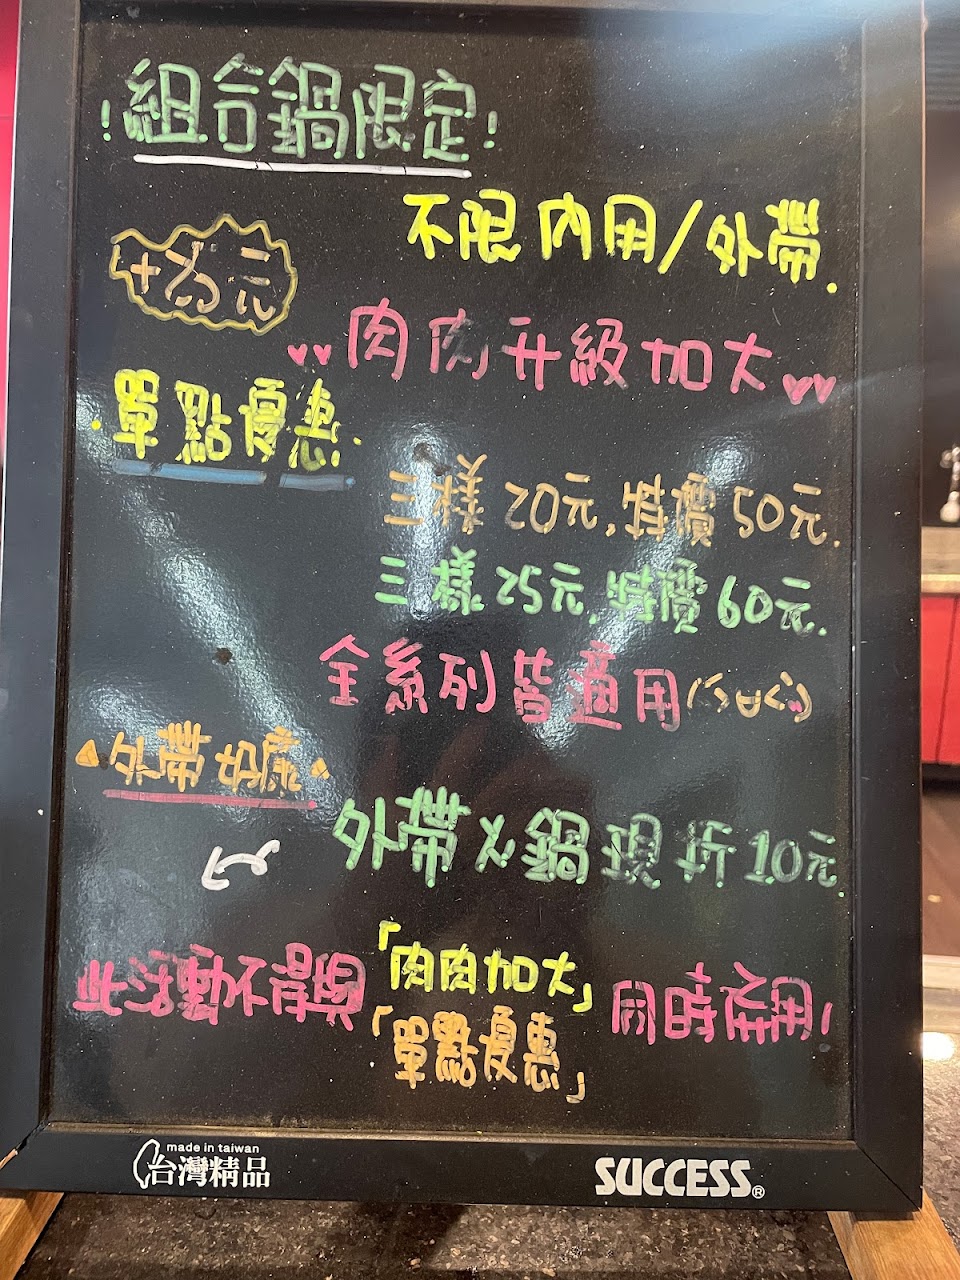 ！組合鍋限定！
不限內用/外帶.
+20元
肉肉升級加大
.單點優惠.
三樣20元,特價50元.
三樣25元,特價60元.
全系列皆適用
外帶好康
外帶火鍋現折10元.
此活動不得與「肉肉加大」「單點優惠」同時套用!
made in taiwan
台灣精品
SUCCESS®